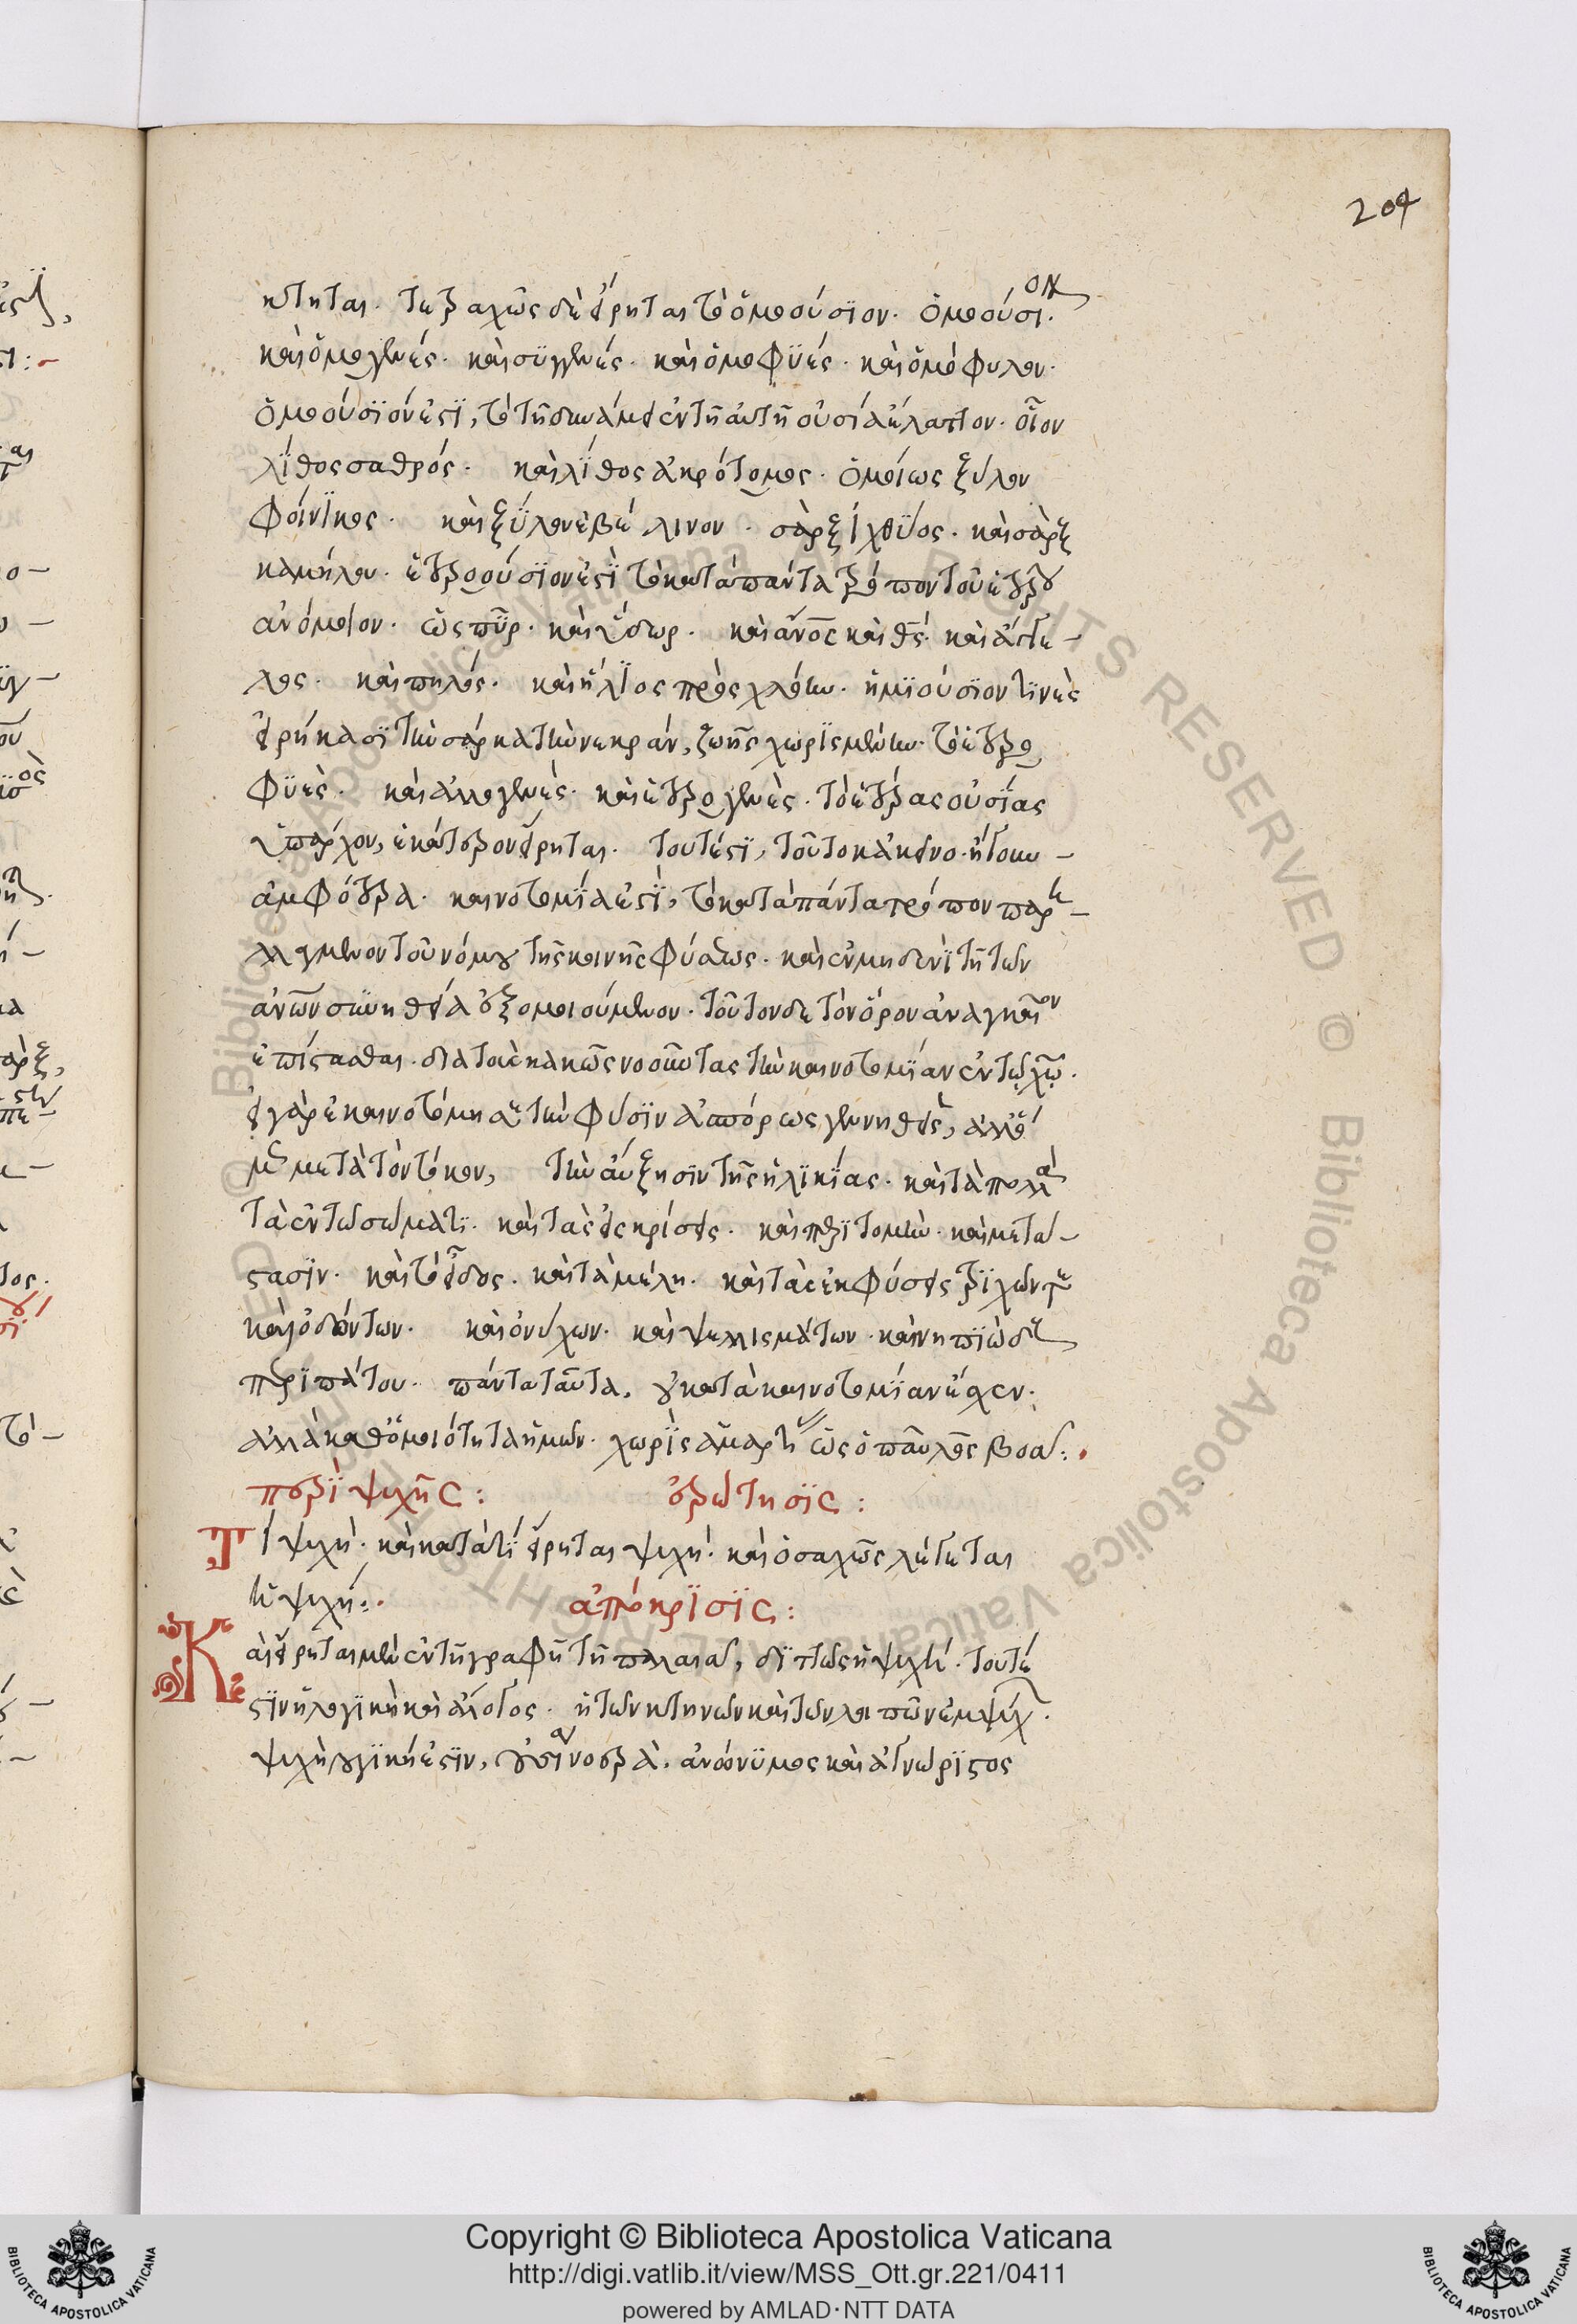 204
κτηται. τετραχῶς δὲ εἴρηται τὸ ὁμοούσιον. ὁμοούσιον.
καὶ ὁμογενές. καὶ συγγενές. καὶ ὁμοφυές. καὶ ὁμόφυλον.
ὁμοούσιόν ἐστι, τὸ τῇ δυνάμει ἐν τῇ αὐτῇ οὐσία ἔλαττον. οἷον
λίθος σαθρός. καὶ λίθος ἀκρότομος. ὁμοίως ξύλον
φοίνικος. καὶ ξύλον ἐβέλινον. σὰρξ ἰχθύος. καὶ σὰρξ
καμήλου. ἑτεροούσιον ἐστὶ τὸ κατὰ πάντα τρόπον τοῦ ἑτέρου
ἀνόμοιον. ὡς πῦρ. καὶ ὕδωρ. καὶ ἄνος καὶ θς. καὶ ἄγγε-
λος. καὶ πηλός. καὶ ἥλιος πρὸς χλόην. ἡμιούσιον τινὲς
εἰρήκασι τὴν σάρκα τὴν νεκράν, ζωῆς χωρὶς μένην. τὸ ἑτερο
φυὲς. καὶ ἀλλογενὲς. καὶ ἑτερογενὲς. τὸ ἑτέρας οὐσίας
ὑπάρχον, ἑκάτερον εἴρηται. τουτέστι, τοῦτο κἀκεῖνο. ἤγουν-
ἀμφότερα. καινοτομία ἐστὶ, τὸ κατὰ πάντα τρόπον παρη-
λλαγμένον τοῦ νόμου τῆς κοινῆς φύσεως. καὶ ἐν μηδενὶ τῇ τῶν
ἀνων συνηθεία ἐξομοιούμενον. τοῦτον δὲ τὸν ὅρον ἀναγκαῖον
ἐπίστασθαι. διὰ τοὺς κακῶς νοοῦντας τὴν καινοτομίαν ἐν τῷ χῷ.
εἰ γὰρ ἐκαινοτόμησε τὴν φύσιν ἀσπόρως γεννηθεὶς, ἀλλ' οὔ
μ μετὰ τὸν τόκον, τὴν αὔξησιν τῆς ἡλικίας. καὶ τὰ πολλὰ
τὰ ἐν τῷ σώματι. καὶ τὰς ἐκκρίσεις. καὶ περιτομὴν. καὶ μετά-
στασιν. καὶ τὸ εἶδος. καὶ τὰ μέλη. καὶ τὰς ἐκφύσεις τριχῶν τε
καὶ ὀδόντων. καὶ ὀνύχων. καὶ ψελλισμάτων. καὶ νηπιώδη
περιπάτου. πάντα ταῦτα, οὐ κατὰ καινοτομίαν ἔσχεν.
ἀλλὰ καθ' ὁμοιότητα ἡμῶν. χωρὶς ἁμαρτίας ὡς ὁ παῦλος βοᾶ:
περὶ ψυχῆς: ἐρώτησις:
Τί ψυχὴ. καὶ κατὰ τί εἴρηται ψυχή. καὶ ὁσαχῶς λέγεται
ἡ ψυχή: ἀπόκρισις:
Καὶ εἴρηται μὲν ἐν τῇ γραφῇ τῇ παλαιᾷ, διττῶς ἡ ψυχή. τουτέ
στιν ἡ λογικὴ καὶ ἄλογος. ἡ τῶν κτηνῶν καὶ τῶν λοιπῶν ἐμψύχ.
ψυχὴ λογικὴ ἐστιν, οὐσία νοερὰ. ἀνώνυμος καὶ ἀγνώριστος
Copyright © Biblioteca Apostolica Vaticana
http://digi.vatlib.it/view/MSS_Ott.gr.221/0411
powered by AMLAD·NTT DATA